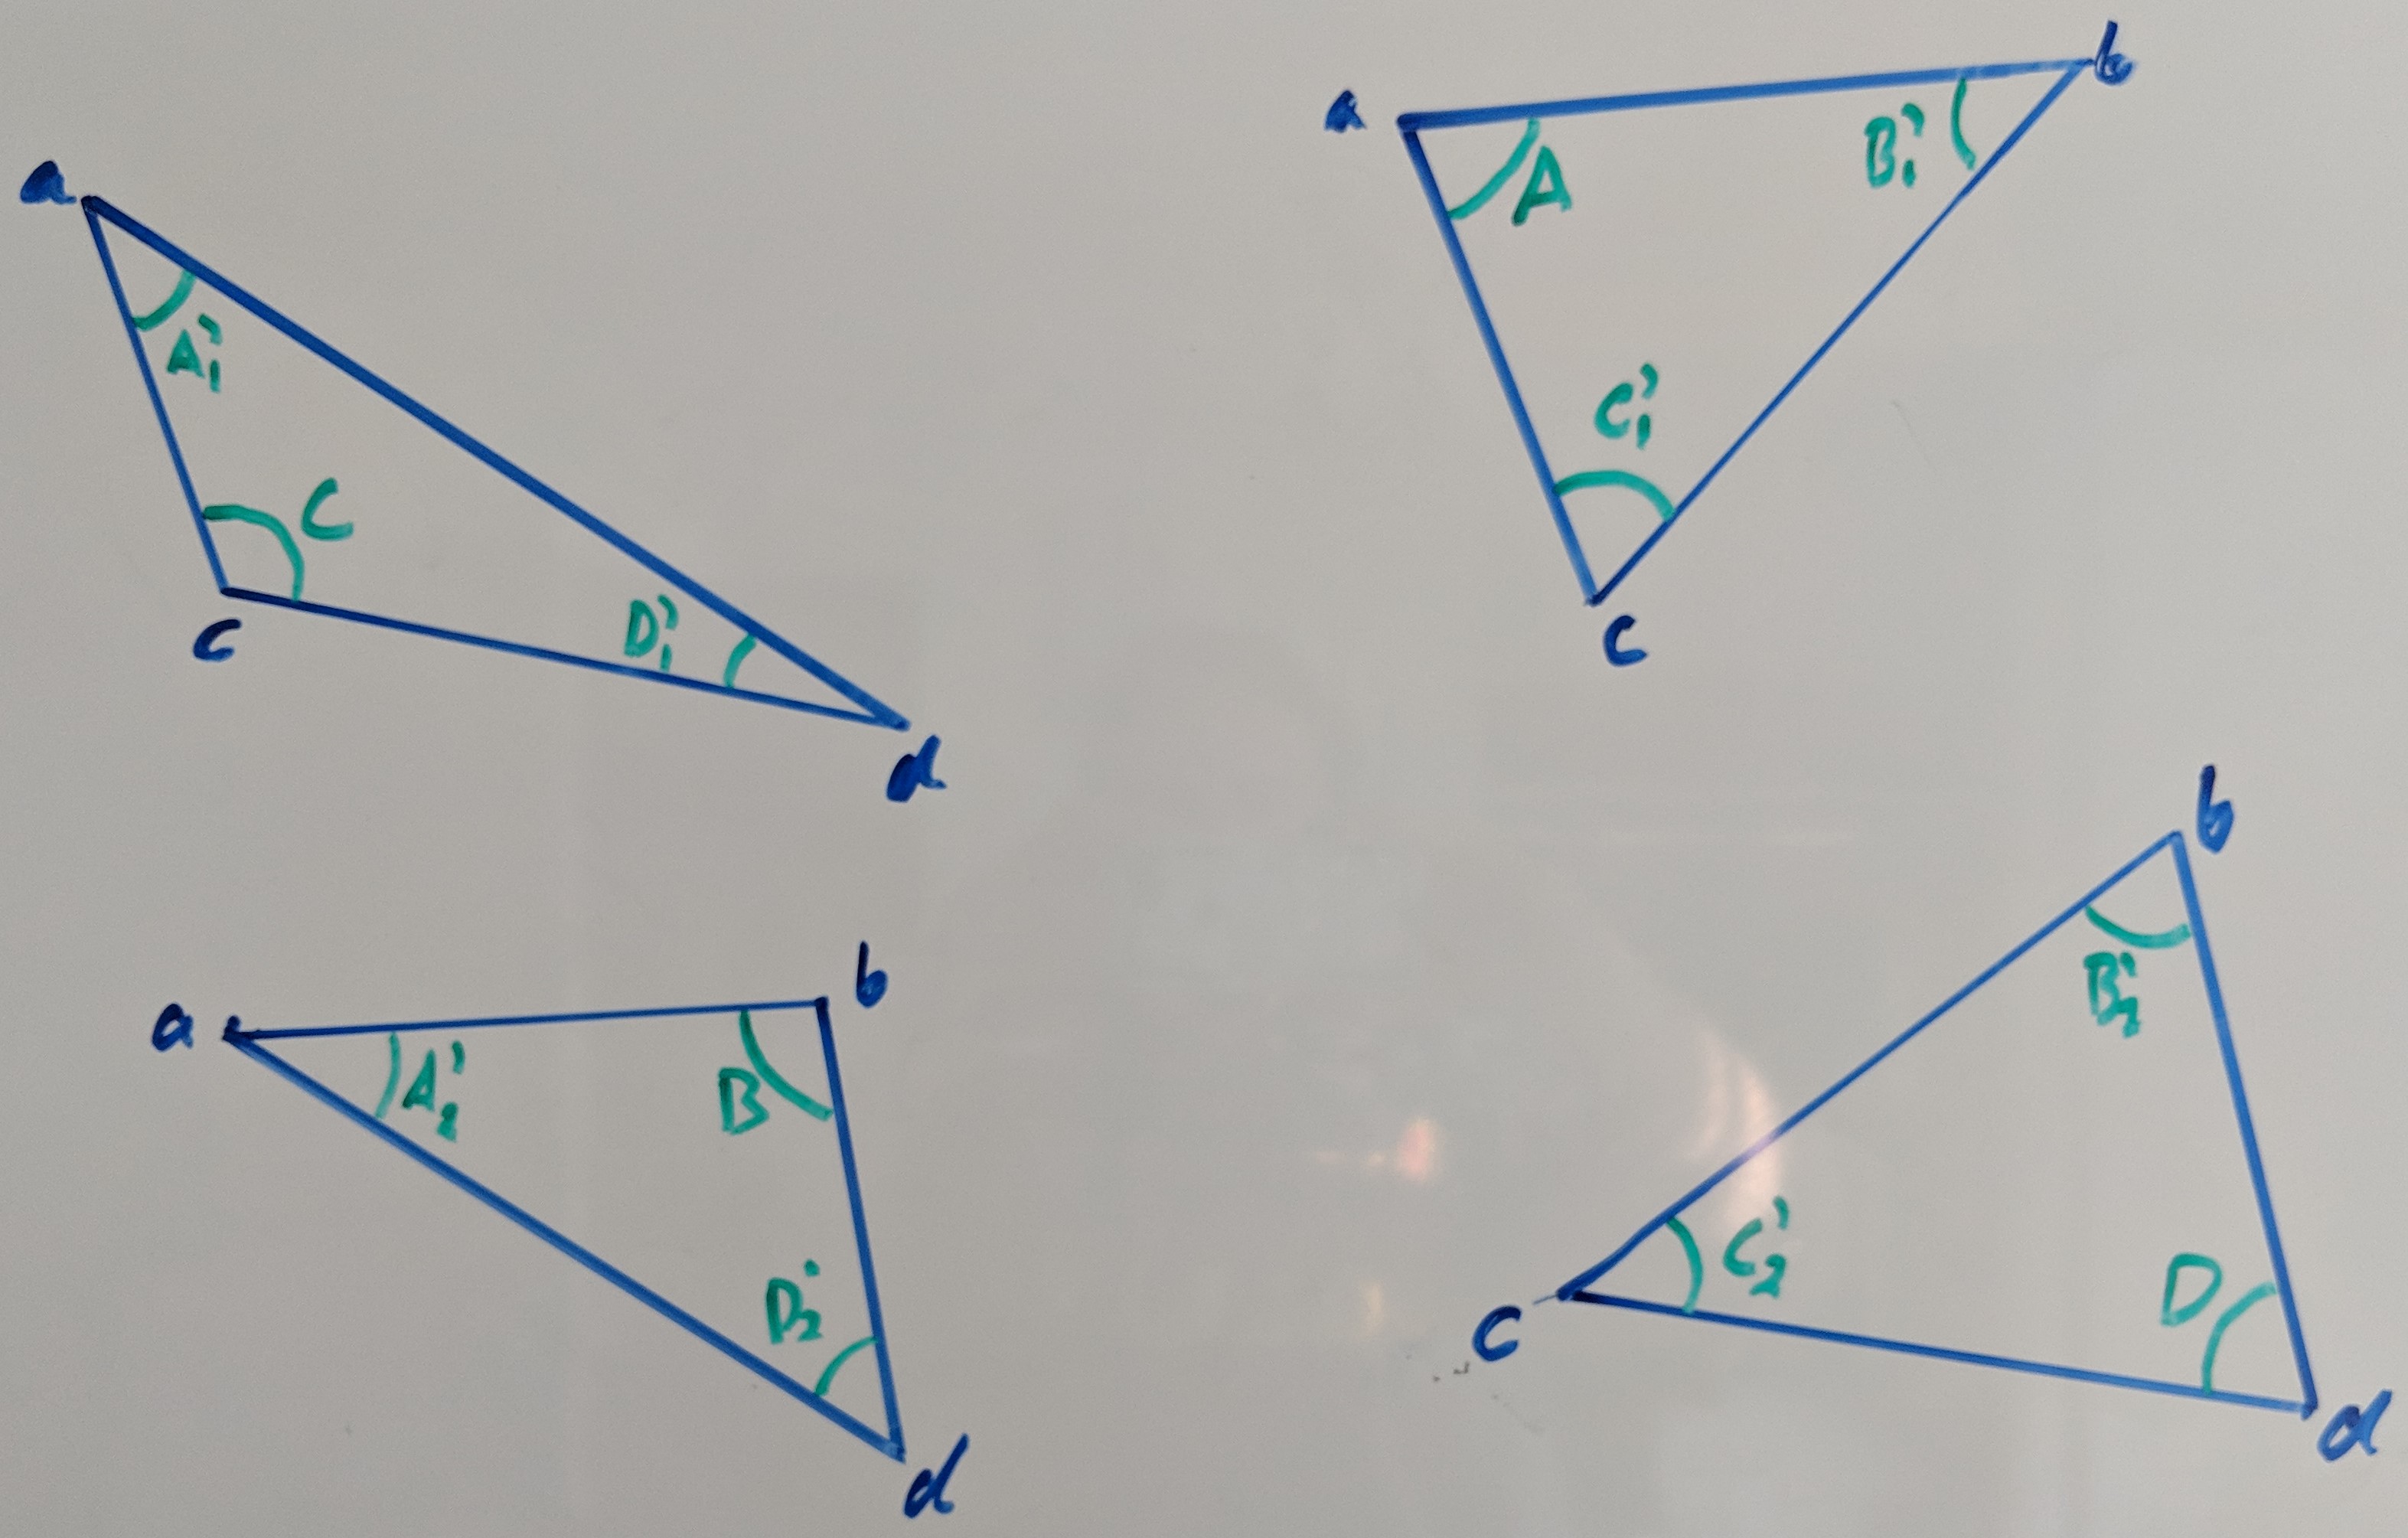 a
A'₁
C
c
D'₁
d
a
b
A
B'₁
C'₁
c
a
b
A'₂
B
D'₂
d
b
B'₂
c
C'₂
D
d